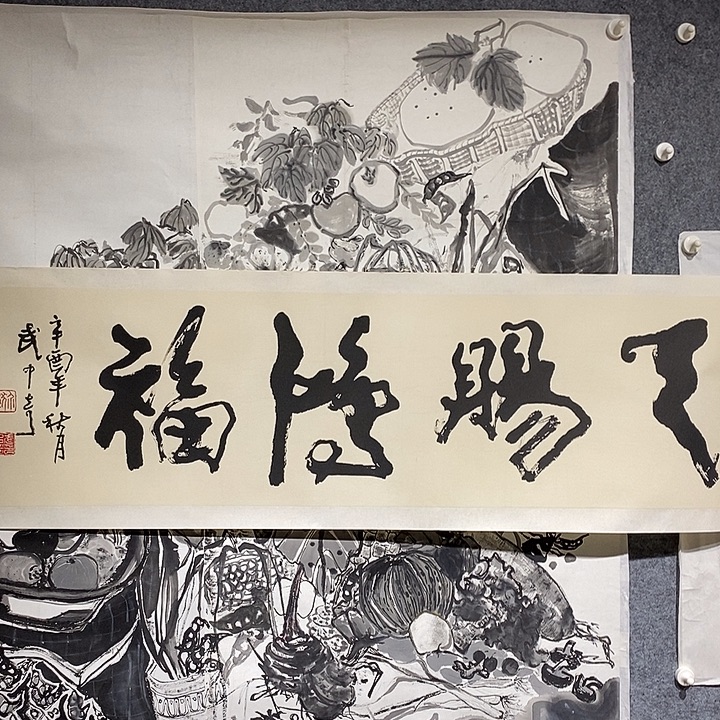 天赐鸿福
辛酉年秋月
武中奇